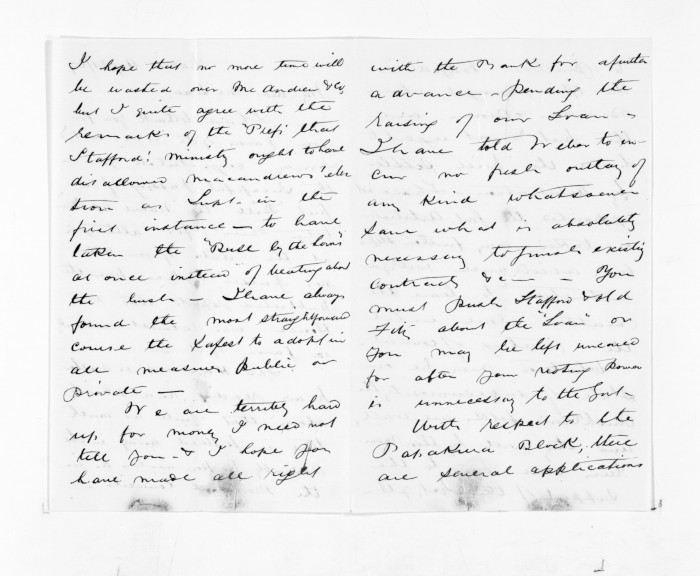 I hope that no more time will
be wasted over McAndrew & Co,
but I quite agree with the
remarks of the Press that
Stafford's Ministry ought to have
disallowed Macandrews' elec
tion as Supt. in the
first instance — to have
taken the "Bull by the horns"
at once instead of beating about
the bush — I have always
found the most straightforward
course the safest to adopt in
all measures public or
private —
We are terribly hard
up for money I need not
tell you - & I hope you
have made all right
with the Bank for a further
advance - pending the
raising of our Loan -
I have told Weber to in-
cur no fresh outlay of
any kind whatsoever
save what is absolutely
necessary to finish existing
contracts &c — - You
must push Stafford & old
Fitz about the "Loan" or
you may be left uncared
for after your voting power
is unnecessary to the Govt -
With respect to the
Block, there
are several applications